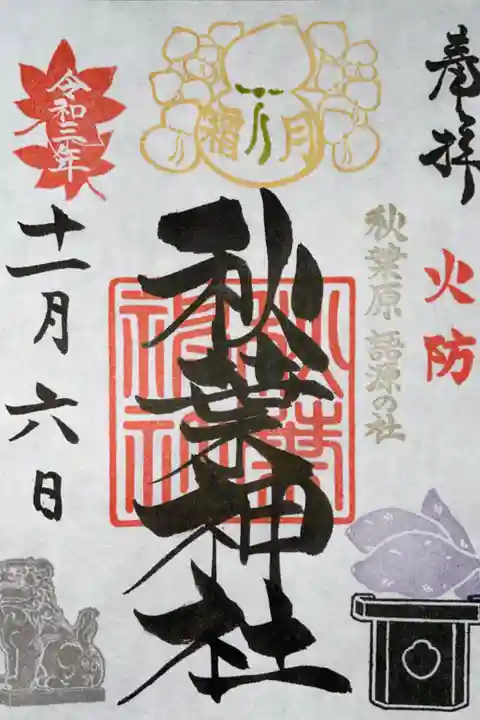 奉拝
火防
秋葉原 語源の社
霜月
秋葉神社
秋葉神社
令和三年
十一月六日